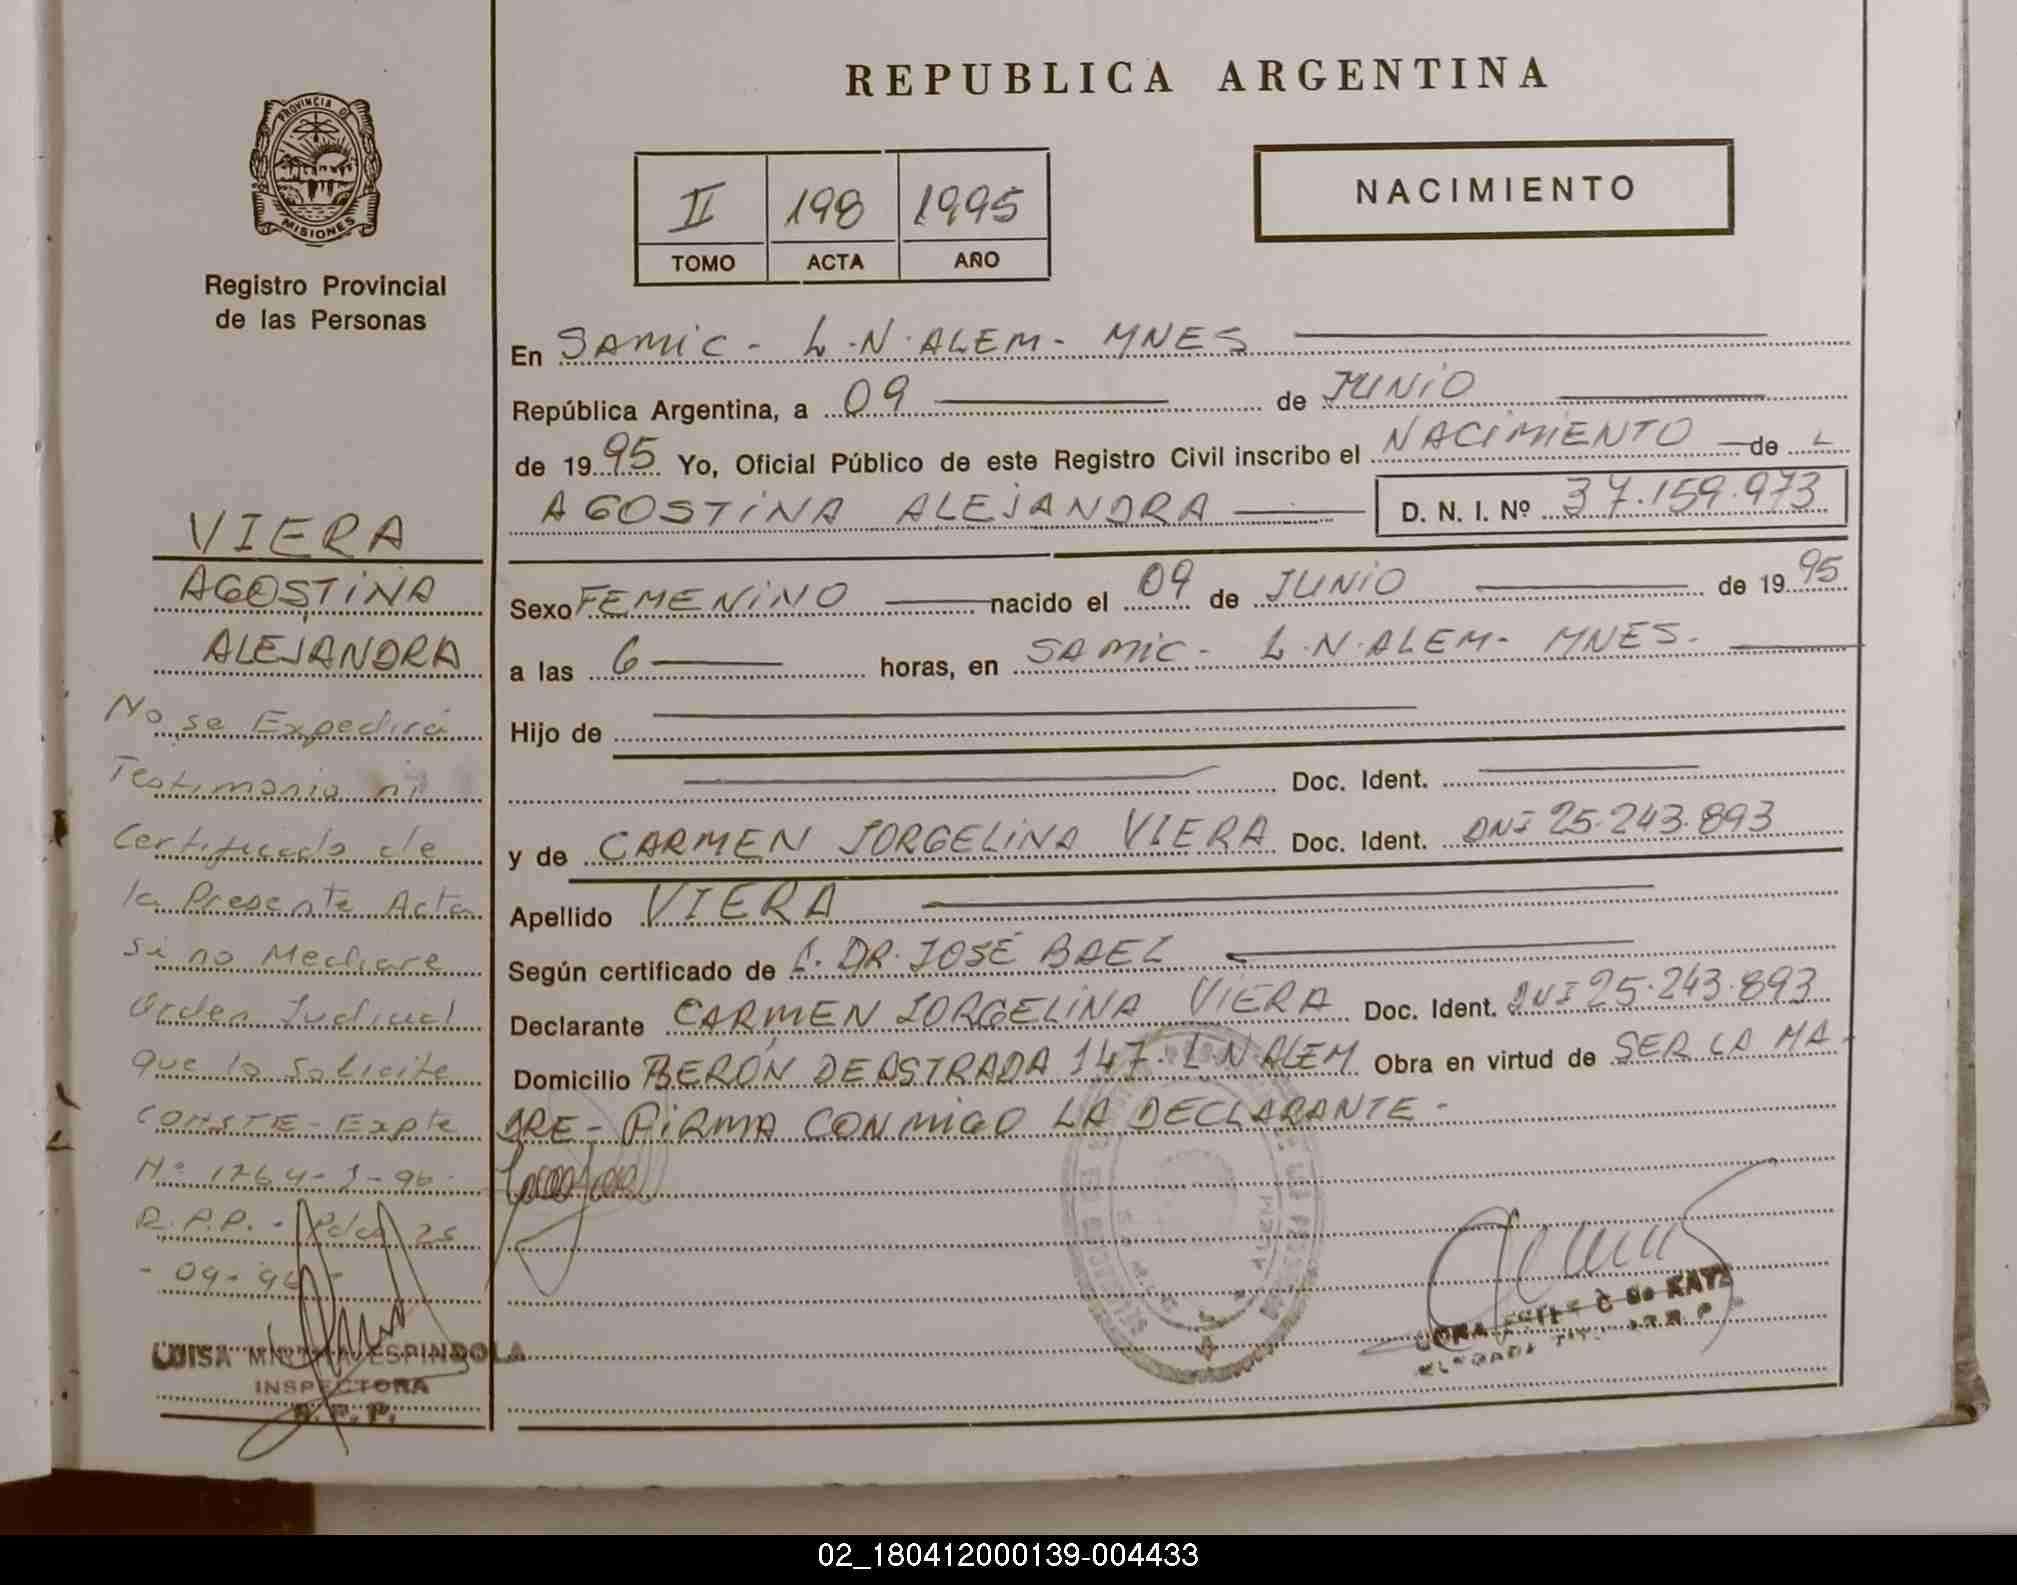 REPUBLICA ARGENTINA
PROVINCIA DE
MISIONES
Registro Provincial
de las Personas
II 198 1995
TOMO ACTA AÑO
NACIMIENTO
En SAMIC - L.N.ALEM- MNES
República Argentina, a 09 de JUNIO
de 1995 Yo, Oficial Público de este Registro Civil inscribo el NACIMIENTO de
AGOSTINA ALEJANDRA D. N. I. Nº 37.159.973
Sexo FEMENINO nacido el 09 de JUNIO de 1995
a las 6 horas, en SAMIC - L.N.ALEM- MNES.
Hijo de
Doc. Ident.
y de CARMEN JORGELINA VIERA Doc. Ident. DNI 25.243.893
Apellido VIERA
Según certificado de DR. JOSÉ BAEZ
Declarante CARMEN JORGELINA VIERA Doc. Ident. DNI 25.243.893
Domicilio BERÓN DE ASTRADA 147. L N ALEM Obra en virtud de SER LA MA-
DRE - FIRMA CONMIGO LA DECLARANTE-
VIERA
AGOSTINA
ALEJANDRA
No se Expedirá
Testimonio ni
Certificado de
la Presente Acta
si no Mediare
Orden Judicial
que lo Solicite
CONSTE - Expte
Nº 1764-J-96-
R.P.P. - Pdas 25
- 09-96-
LUISA ESPINDOLA
INSPECTORA
R. P. P.
02_180412000139-004433